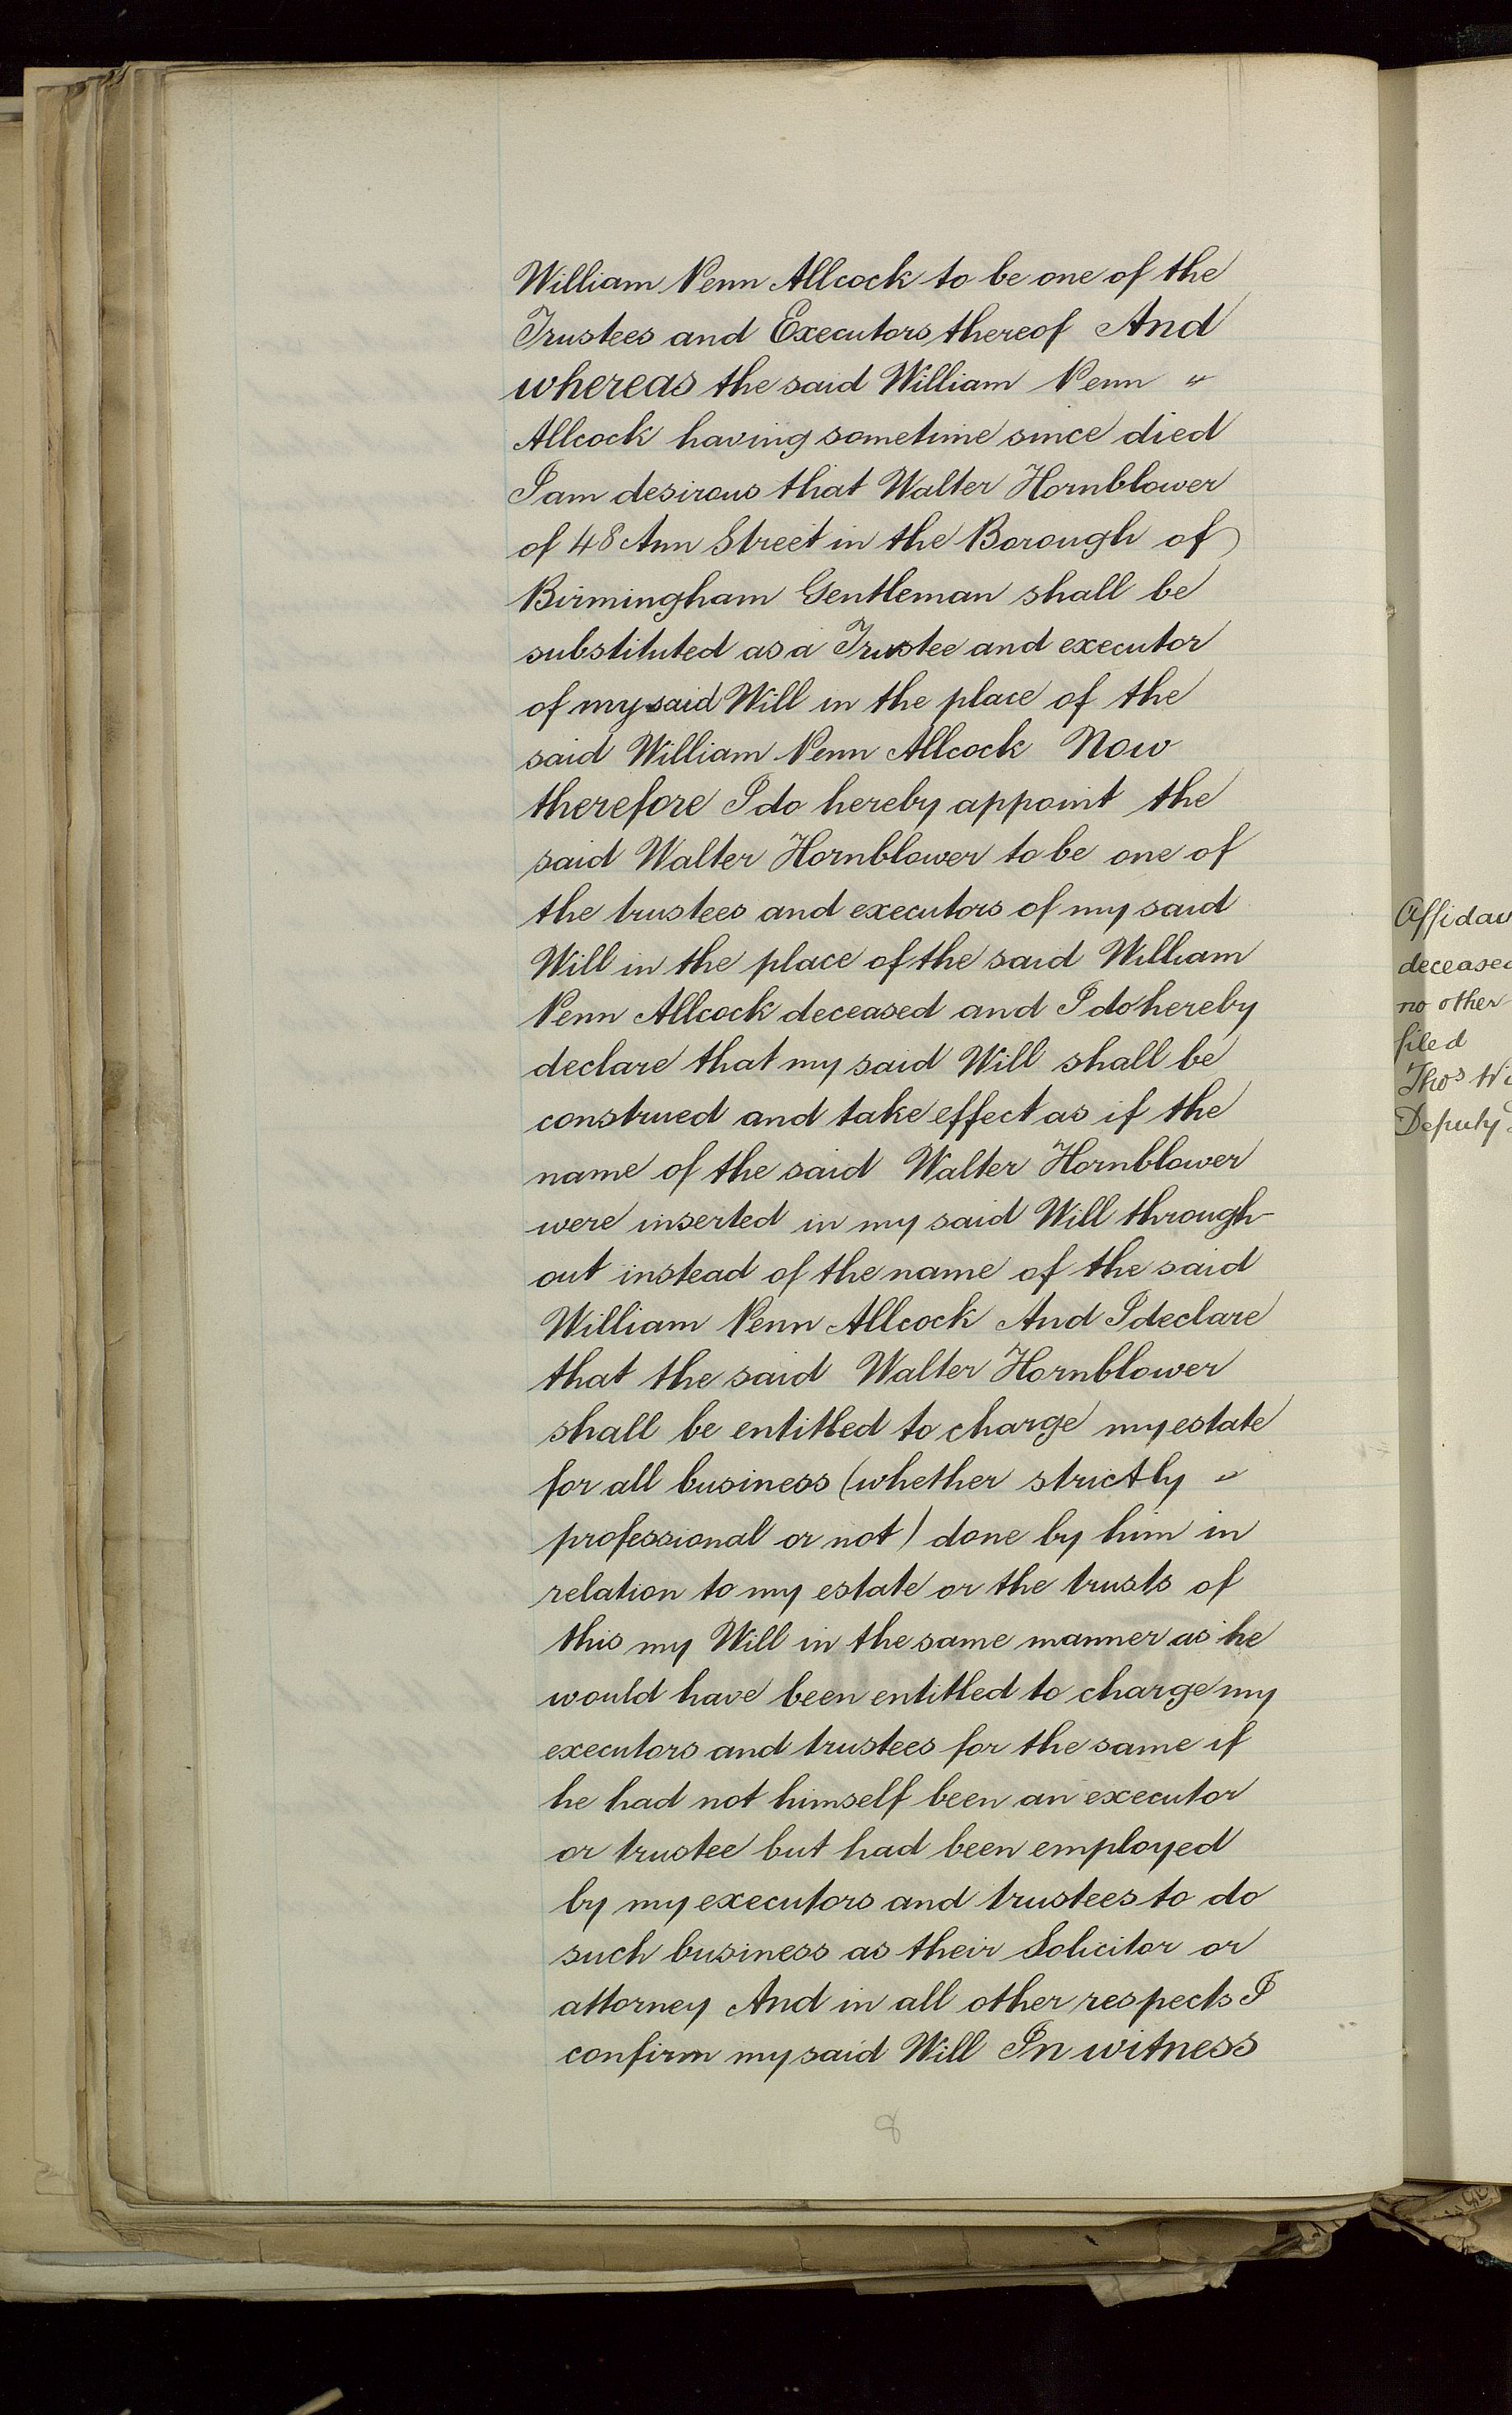 William Penn Allcock to be one of the
Trustees and Executors thereof And
whereas the said William Penn "
Allcock having sometime since died
I am desirous that Walter Hornblower
of 48 Ann Street in the Borough of
Birmingham Gentleman shall be
substituted as a Trustee and executor
of my said Will in the place of the
said William Penn Allcock Now
therefore I do hereby appoint the
said Walter Hornblower to be one of
the trustees and executors of my said
Will in the place of the said William
Penn Allcock deceased and I do hereby
declare that my said Will shall be
construed and take effect as if the
name of the said Walter Hornblower
were inserted in my said Will through-
out instead of the name of the said
William Penn Allcock And I declare
that the said Walter Hornblower
shall be entitled to charge my estate
for all business (whether strictly "
professional or not) done by him in
relation to my estate or the trusts of
this my Will in the same manner as he
would have been entitled to charge my
executors and trustees for the same if
he had not himself been an executor
or trustee but had been employed
by my executors and trustees to do
such business as their Solicitor or
attorney And in all other respects I
confirm my said Will In witness
8
Affidav
deceased
no other
filed
Thos
Deputy